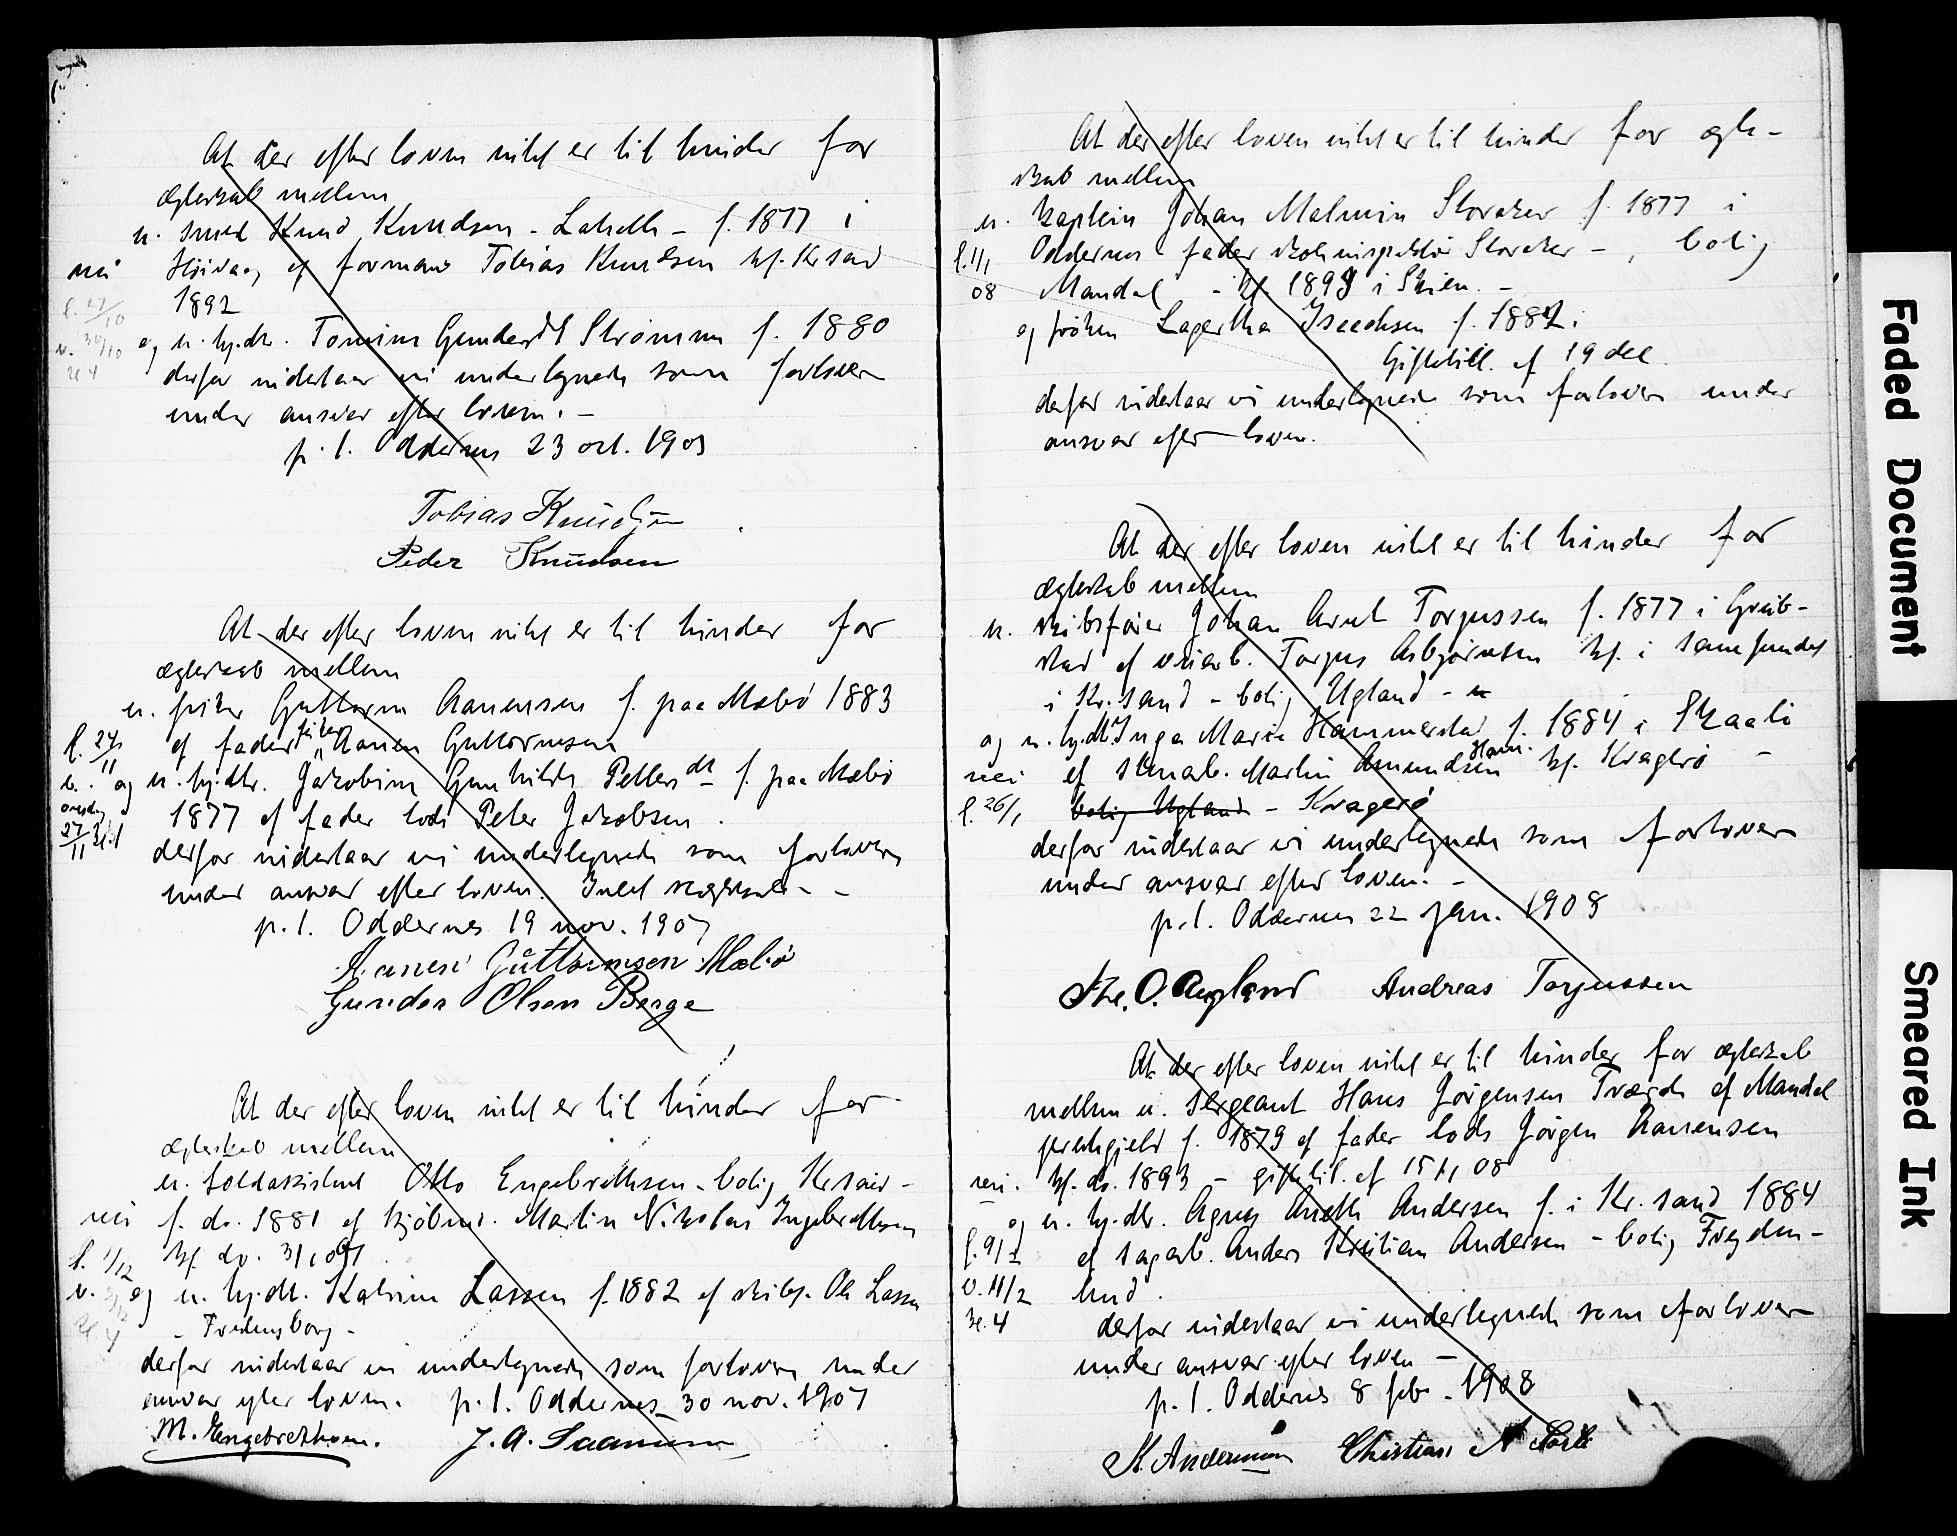 At der efter loven intet er til hinder for
ægteskab mellem
u. smed Knud Knudsen - f. 1877 i
nei Höivaag af formand Tobias Knudsen kf. Krsand
1892
og u. hj.dt. Tomine Gundersdt Strømme f. 1880
derfor indestaar vi undertegnede som forlovere
under ansvar efter loven. -
p. t. Oddernes 23 oct. 190
Tobias Knudsen
Peder Knudsen
At der efter loven intet er til hinder for
ægteskab mellem
u. fisker Guttorm Aanensen f. paa Mæbö 1883
l. 24/11 af fader fisker Aanen Guttormsen
og u. hj.dt. Jakobine Gunhilde Petersdt f. paa Mæbö
onsdag 27/11 1877 af fader lods Peter Jakobsen.
derfor indestaar vi undertegnede som forlovere
under ansvar efter loven. Intet slægtskab - -
p. t. Oddernes 19 nov. 1907
Aanen Guttormsen Mæbö
Gunder Olsen Berge
At der efter loven intet er til hinder for
ægteskab mellem
u. toldassistent Otto Engebrethsen - bolig Krsand -
nei f. do. 1881 af kjöbm. Martin Nikolai Ingebrethsen
l. 1/12 kf. do.
v. og u. hj.dt. Katrine Lassen f. 1882 af skibsf. Ole Lassen
- Fredensborg -
derfor indestaar vi undertegnede som forlovere under
ansvar efter loven. p. t. Oddernes 30 nov. 1907
M. Engebrethsen. J. A. Saamum
At der efter loven intet er til hinder for ægte-
skab mellem
u. kaptein Johan Malmin Storaker f. 1877 i
l. 1/1 Oddernes fader skoleinspektör Storaker - , bolig
08 Mandal - kf 1893 i Skien. -
og fröken Lagertha Isachsen f. 1882 i
Giftetill. af 19 dec
derfor indestaar vi undertegnede som forlovere under
ansvar efter loven.
At der efter loven intet er til hinder for
ægteskab mellem
u. skibsförer Johan Arnt Torjussen f. 1877 i Greib-
stad af veiarb. Torjus Asbjörnsen kf. i samfundet
i Kr.sand - bolig Ugland -
og u. hj.dt. Inga Marie Hammerstad f. 1884 i Skaatö
nei af stenarb. Martin Amundsen Ham. kf. Kragerö -
l. 26/1 bolig Ugland - Kragerö
derfor indestaar vi undertegnede som forlovere
under ansvar efter loven. -
p. t. Oddernes 22 jan. 1908
O. Augland Andreas Torjussen
At der efter loven intet er til hinder for ægteskab
mellem u. sergeant Hans Jörgensen Tværde af Mandal
prestegjeld f. 1879 af fader lods Jörgen Aanensen
nei. kf. do. 1893 - giftetil. af 15/1 08
og u. hj.dt. Agnes Anette Andersen f. i Kr.sand 1884
l. 9/2 af sagarb. Anders Kristian Andersen - bolig Fryden-
v. 11/2 lund.
kl. 4 derfor indestaar vi undertegnede som forlovere
under ansvar efter loven -
p. t. Oddernes 8 feb. 1908
K. Andersen Christian A
Faded Document
Smeared Ink